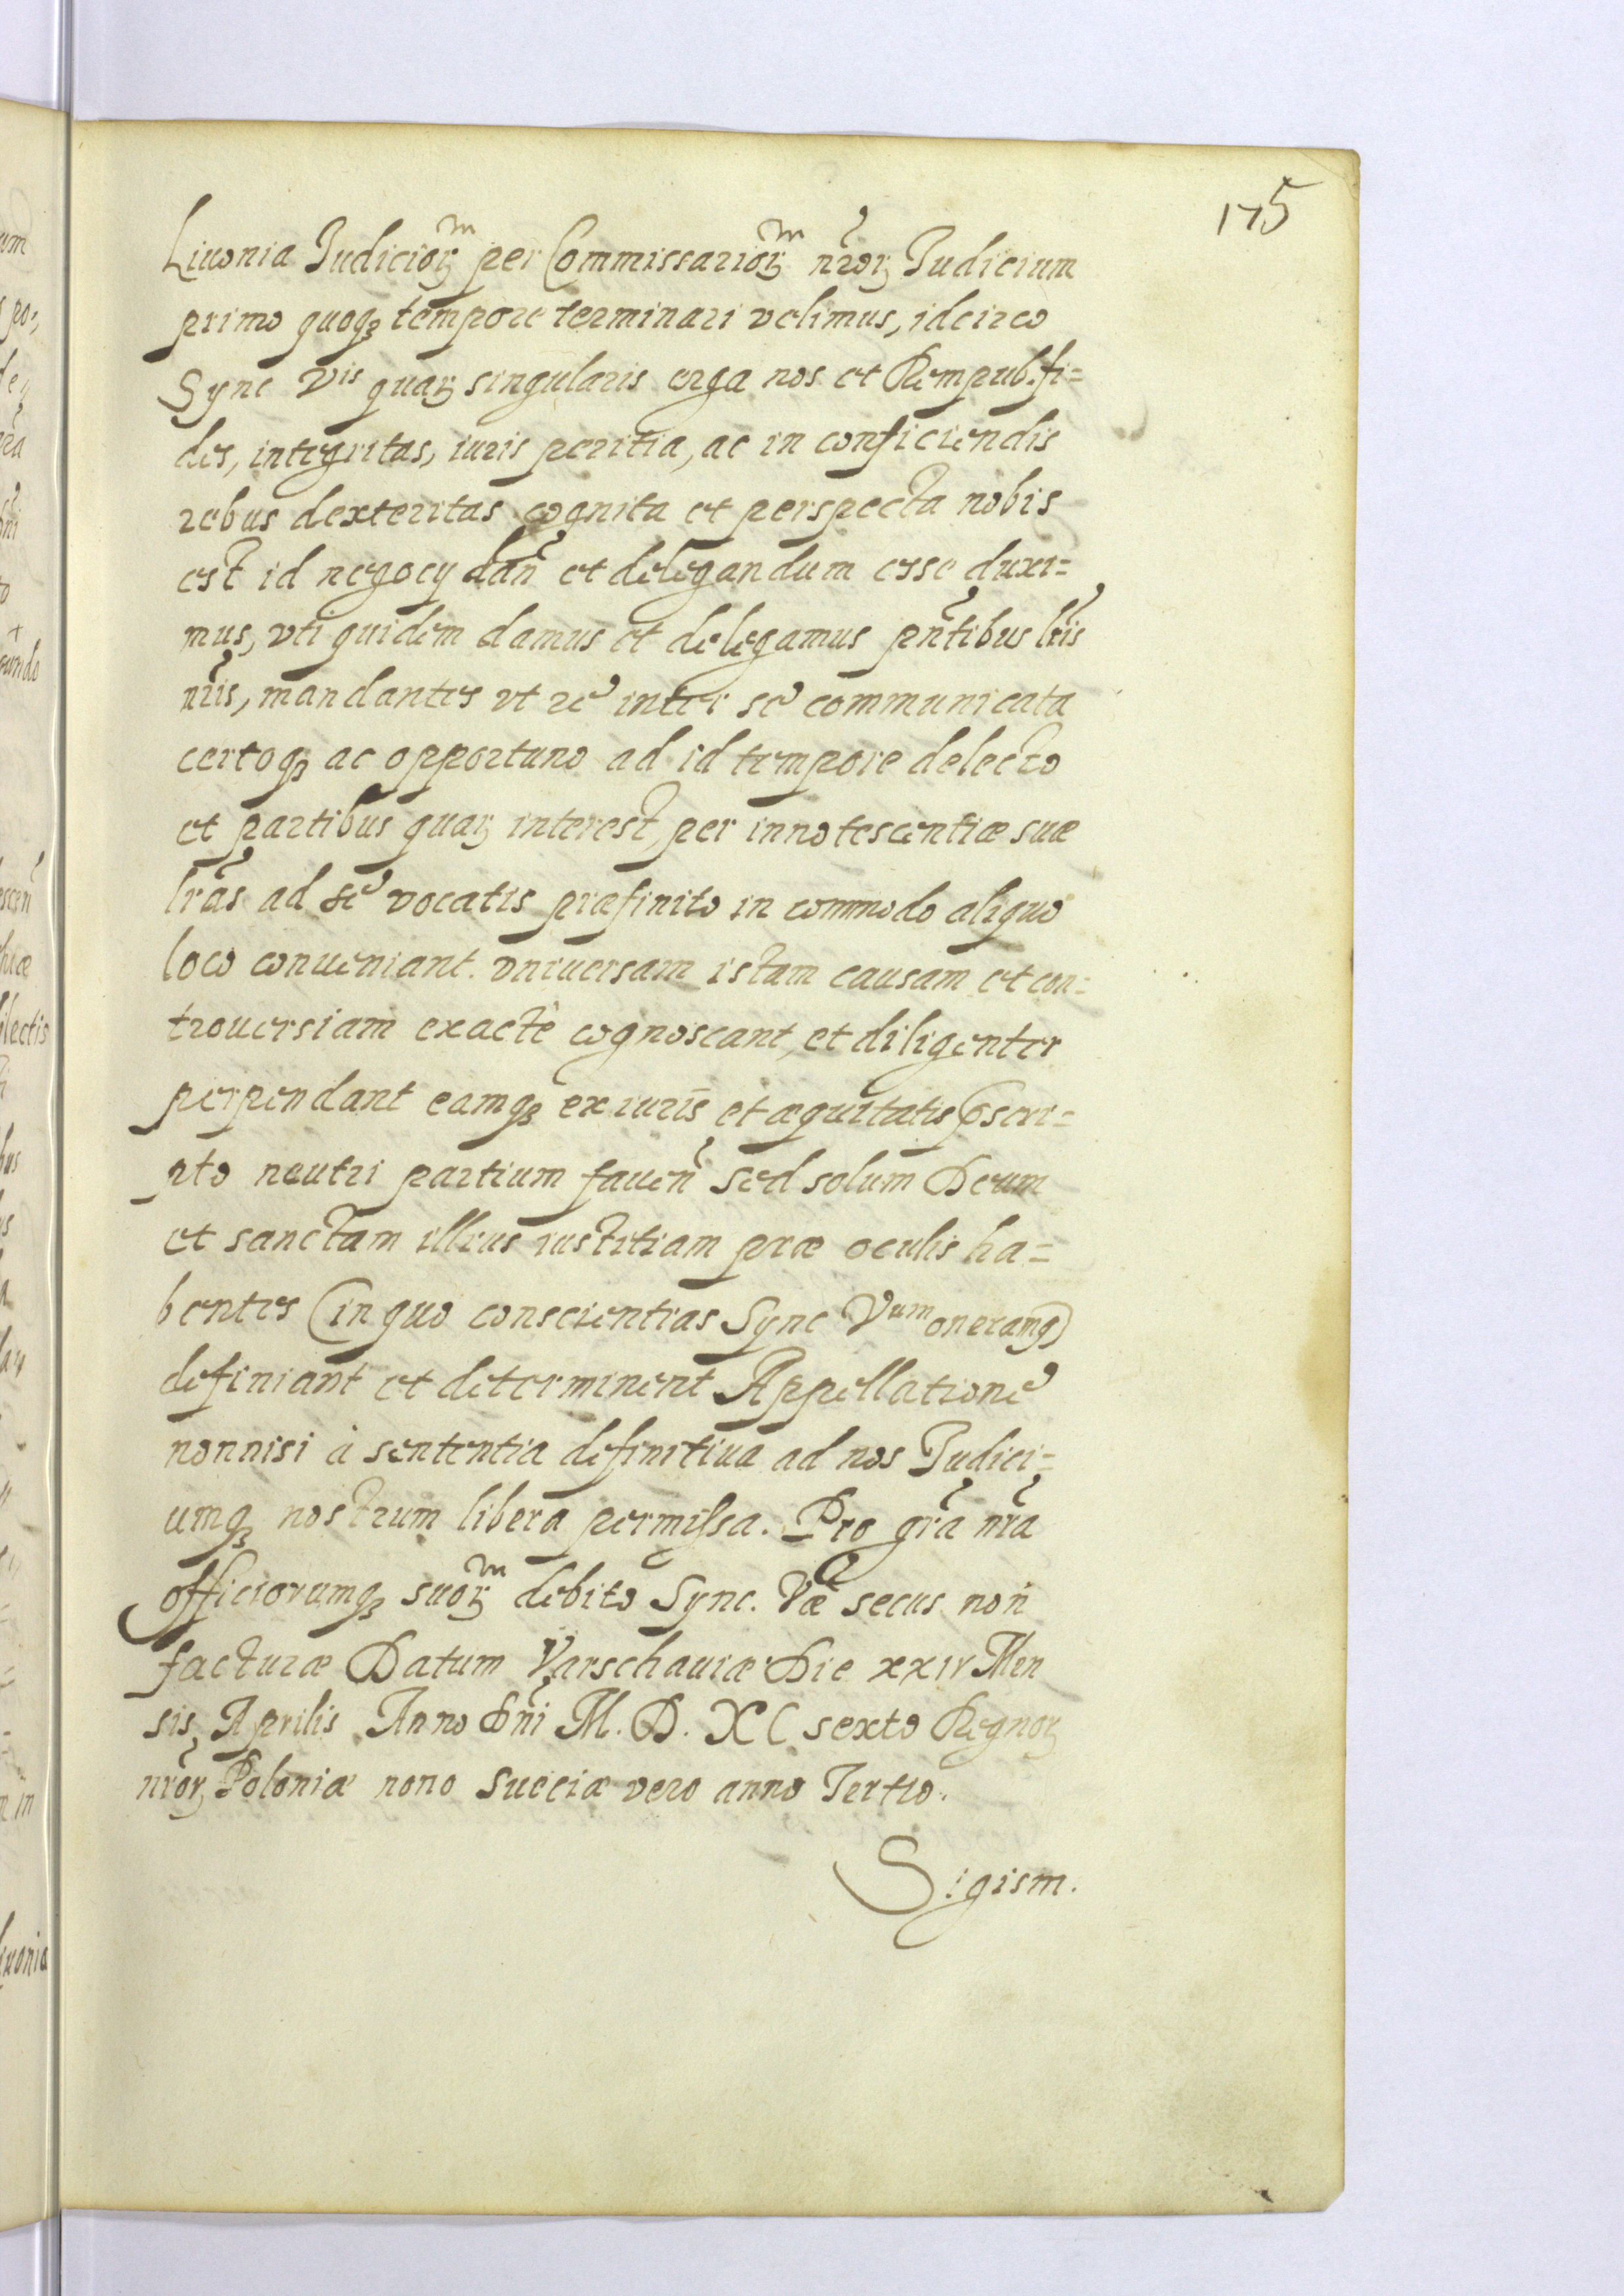 175
Liuonia Judicioꝝ per Commissarioꝝ nr̃oꝝ Judicium
primo quoqꝫ tempore terminari velimus, idcirco
Sync Vis quaꝝ singularis erga nos et Rempub. fi=
des, integritas, iuris peritia, ac in conficiendis
rebus dexteritas cognita et perspecta nobis
est id negocy dan̄ et delegandum esse duxi=
mus, vti quidem damus et delegamus pn̄tibus lr̄is
nr̄is, mandantes vt rē inter sē communicata
certoqꝫ ac opportuno ad id tempore delecto
et partibus quaꝝ interest, per innotescentiæ suæ
lr̄as ad sē vocatis præfinito in commodo aliquo
loco conueniant. vniuersam istam causam et con=
trouersiam exactè cognoscant, et diligenter
perpendant eamqꝫ ex iuris et æquitatis p̄scri=
pto neutri partium fauen̄ sed solum Deum
et sanctam illius iustitiam præ oculis ha=
bentes (in quo conscientias Sync Vum oneramꝗ)
definiant et determinent Appellationē
nonnisi à sententia definitiua ad nos Judici=
umqꝫ nostrum libera permissa. Pro gr̄a nr̄a
officiorumqꝫ suoꝝ debito Sync. Væ secus non
facturæ Datum Varschauiæ Die xxiv Men
sis Aprilis Anno Dn̄i M. D. XC sexto Regnoꝝ
nr̄oꝝ Poloniæ nono Sueciæ vero anno Tertio.
Sigism.